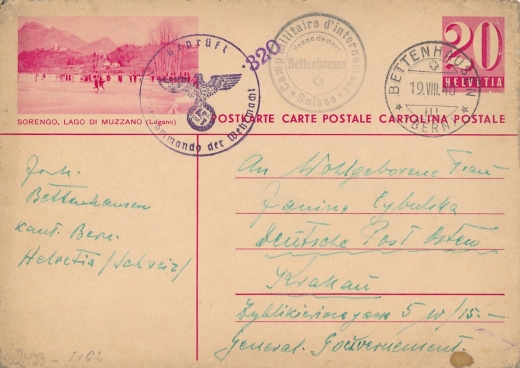 Geprüft
Kommando der Wehrmacht
320
Camp Militaire d'internement
Franc de port
Bettenhausen
Suisse
BETTENHAUSEN
19.VIII.40
III
(BERN)
20
HELVETIA
SORENGO, LAGO DI MUZZANO (Lugano)
POSTKARTE CARTE POSTALE CARTOLINA POSTALE
Bettenhausen
kant. Bern.
Helvetia/Schweiz/
An Wolfgeborene Frau
Janina Cybulska
Deutsche Post Osten
Krakau
5 W/15-
General. Gouvernement.